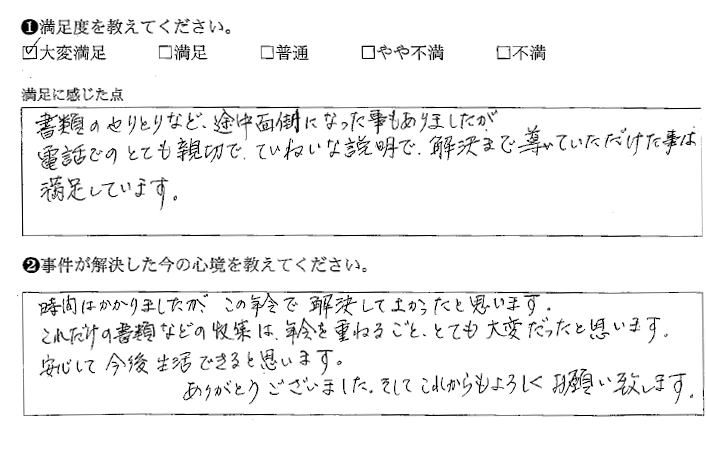 ❶満足度を教えてください。
☑大変満足 □満足 □普通 □やや不満 □不満
満足に感じた点
書類のやりとりなど、途中面倒になった事もありましたが
電話でのとても親切で、ていねいな説明で、解決まで導いていただけた事は
満足しています。
❷事件が解決した今の心境を教えてください。
時間はかかりましたが、この年令で解決してよかったと思います。
これだけの書類などの収集は、年令を重ねるごと、とても大変だったと思います。
安心して今後生活できると思います。
ありがとうございました。そしてこれからもよろしくお願い致します。